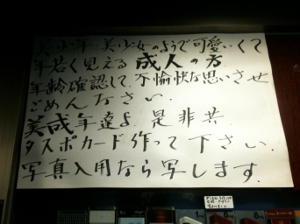 美少年・美少女のようで可愛いくて
年若く見える成人の方
年齢確認して、不愉快な思いさせ
ごめんなさい。
美成年達よ、是非共
タスポカード作って下さい。
写真入用なら写します。